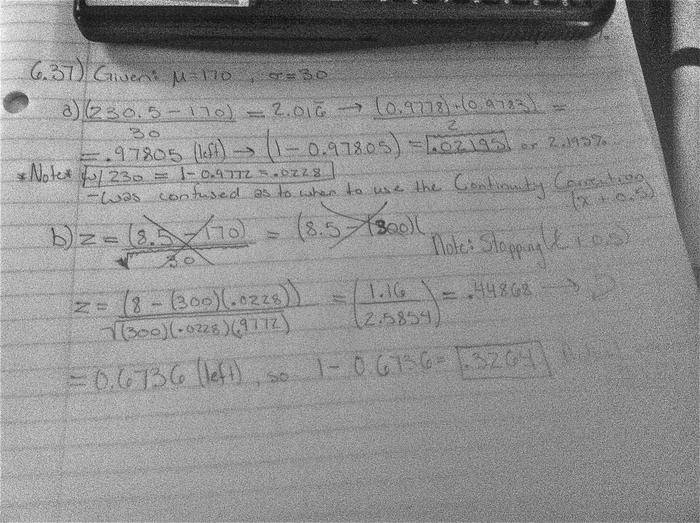 6.37) Given: μ=170, σ=30
a) (230.5-170)/30 = 2.016̅ → (0.9778)+(0.9783)/2 =
= .97805 (left) → (1-0.97805) = .02195 or 2.195%
*Note* w/ 230 = 1-0.9772 = .0228
-was confused as to when to use the Continuity Correction
(x+0.5)
b) z = (8.5-170)/√30 = (8.5-(300)(
Note: Stopping (x+0.5)
z = (8-(300)(.0228))/√(300)(.0228)(.9772) = (1.16/2.5854) = .44868 →
= 0.6736 (left), so 1-0.6736 = .3264